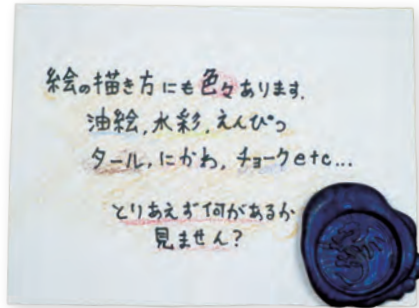 絵の描き方にも色々あります.
油絵,水彩,えんぴつ
タール,にかわ,チョークetc...
とりあえず何があるか
見ません?